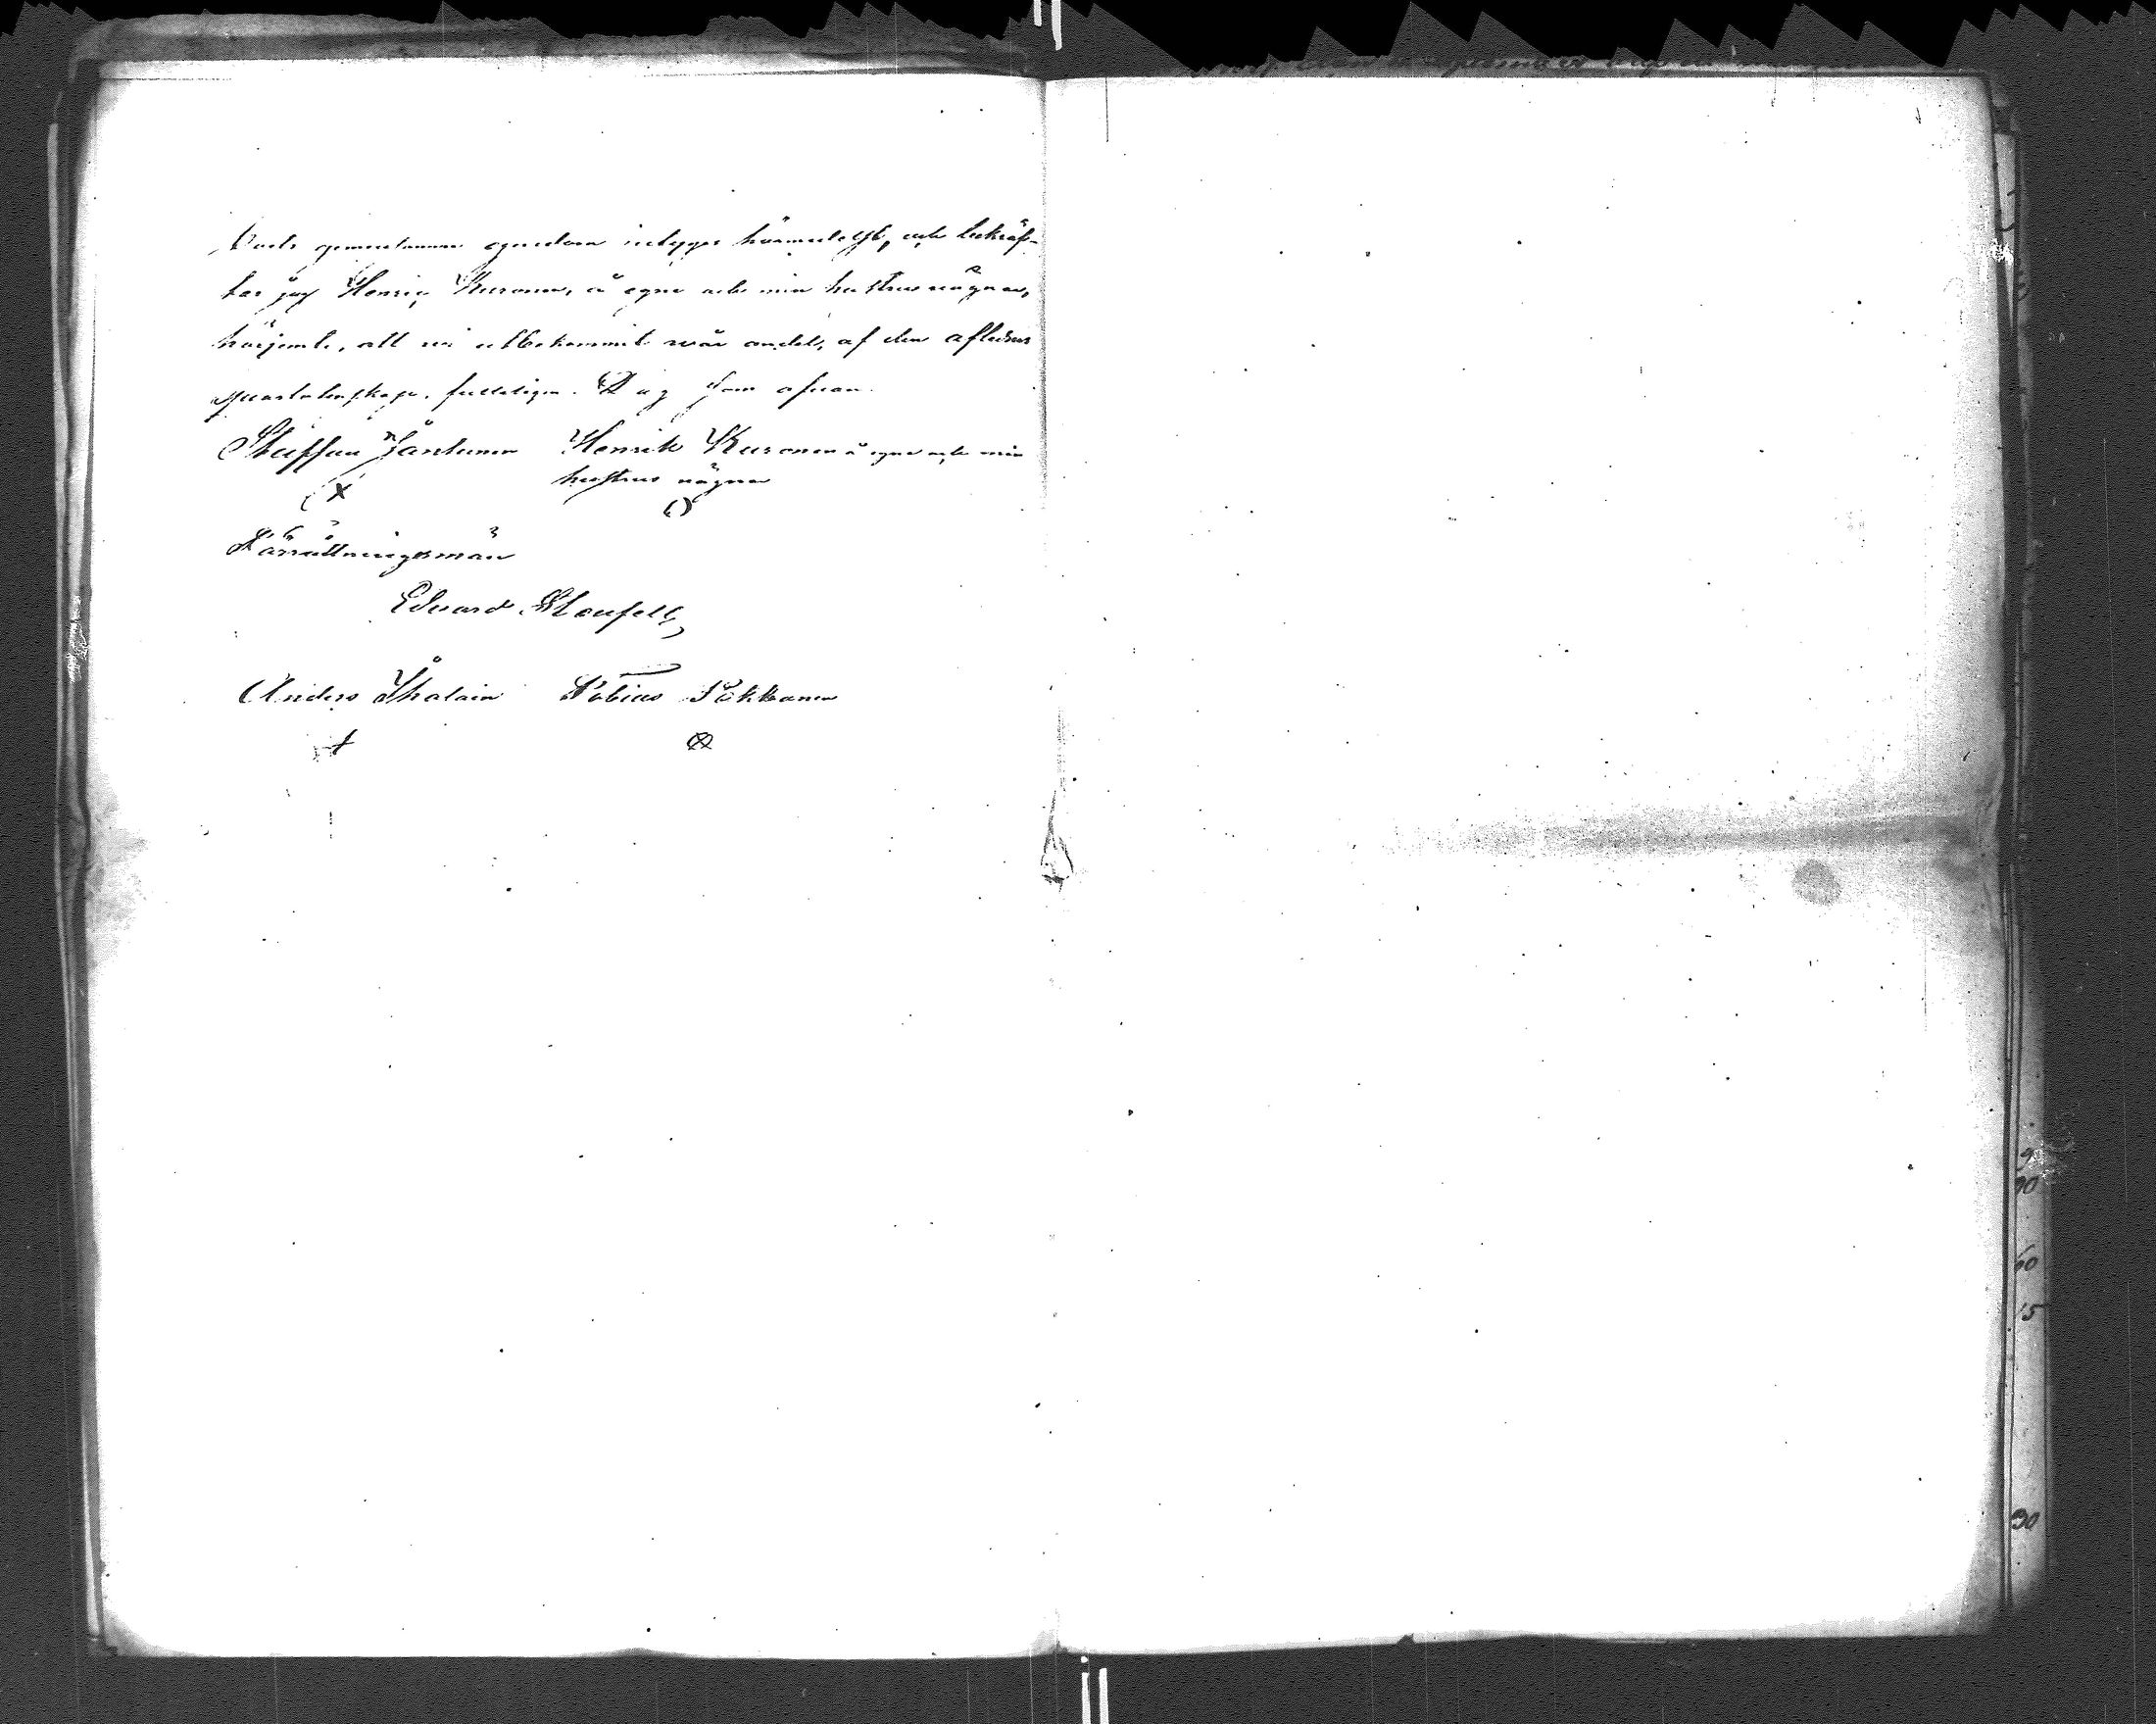 Vårt gemensamma egendom intygas härmedelst, och bekräf-
tar jag Henric Kuronen, å egne och min hustrus vägnar,
härjemte, att vi utbekommit wår andel, af den aflednes
qvarlatenskap, fulleligen. Dag som ofvan.
Staffan Jantunen Henrik Kuronen å egne och min
hustrus vägnar
Förrättningsmän
Eduard Monfelt
Anders Ihalain Tobias Pekkanen
9
90
60
15
30